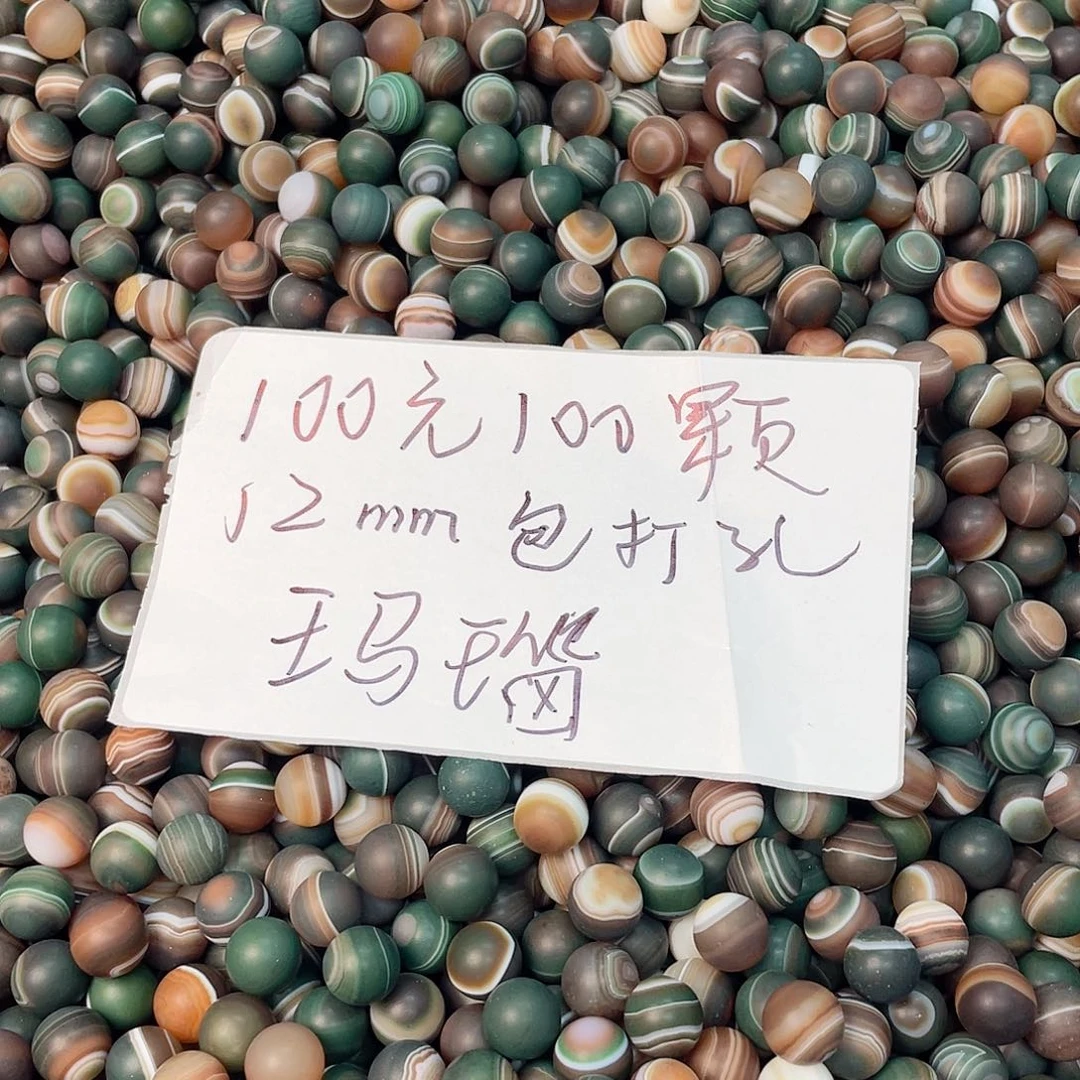 100元100颗
12mm包打孔
玛瑙